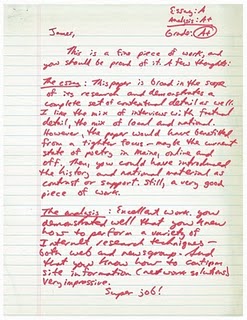 Essay: A
Analysis: A+
Grade: A+
James,
This is a fine piece of work, and
you should be proud of it. A few thoughts:
The essay: This paper is broad in the scope
of its research and demonstrates a
complete set of contextual detail as well.
I like the mix of interviews with factual
detail, the mix of local and national.
However, the paper would have benefited
from a tighter focus - maybe the current
state of poetry in Maine, online and
off. Then, you could have introduced
the history and national material as
contrast or support. Still, a very good
piece of work.
The analysis: Excellent work. You
demonstrated well that you knew
how to perform a variety of
Internet research techniques -
both web and newsgroup. And
that you know how to
site information (network solutions)
very impressive.
Super job!